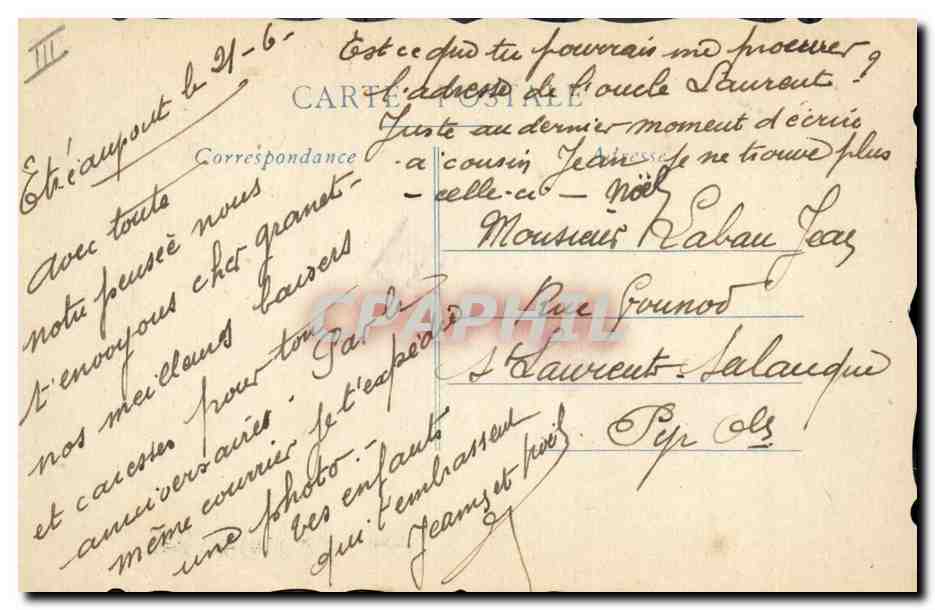 III
Etréaupont le 21-6-
avec toute
notre pensée nous
t'envoyons cher granet-
nos meilleurs baisers
et caresses pour ton
anniversaire. Par le
même courrier je t'expédie
une photo.-
tes enfants
qui t'embrassent
Jeanny et Noël
Est ce que tu pourrais me procurer
l'adresse de l'oncle Laurent?
Juste au dernier moment d'écrire
a cousin Jean Je ne trouve plus
-celle-ci- Noël
CARTE POSTALE
Correspondance
Adresse
Monsieur Labau Jean
Rue Gounod
St Laurent-Salanque
Pyr Oles
CPAPHIL